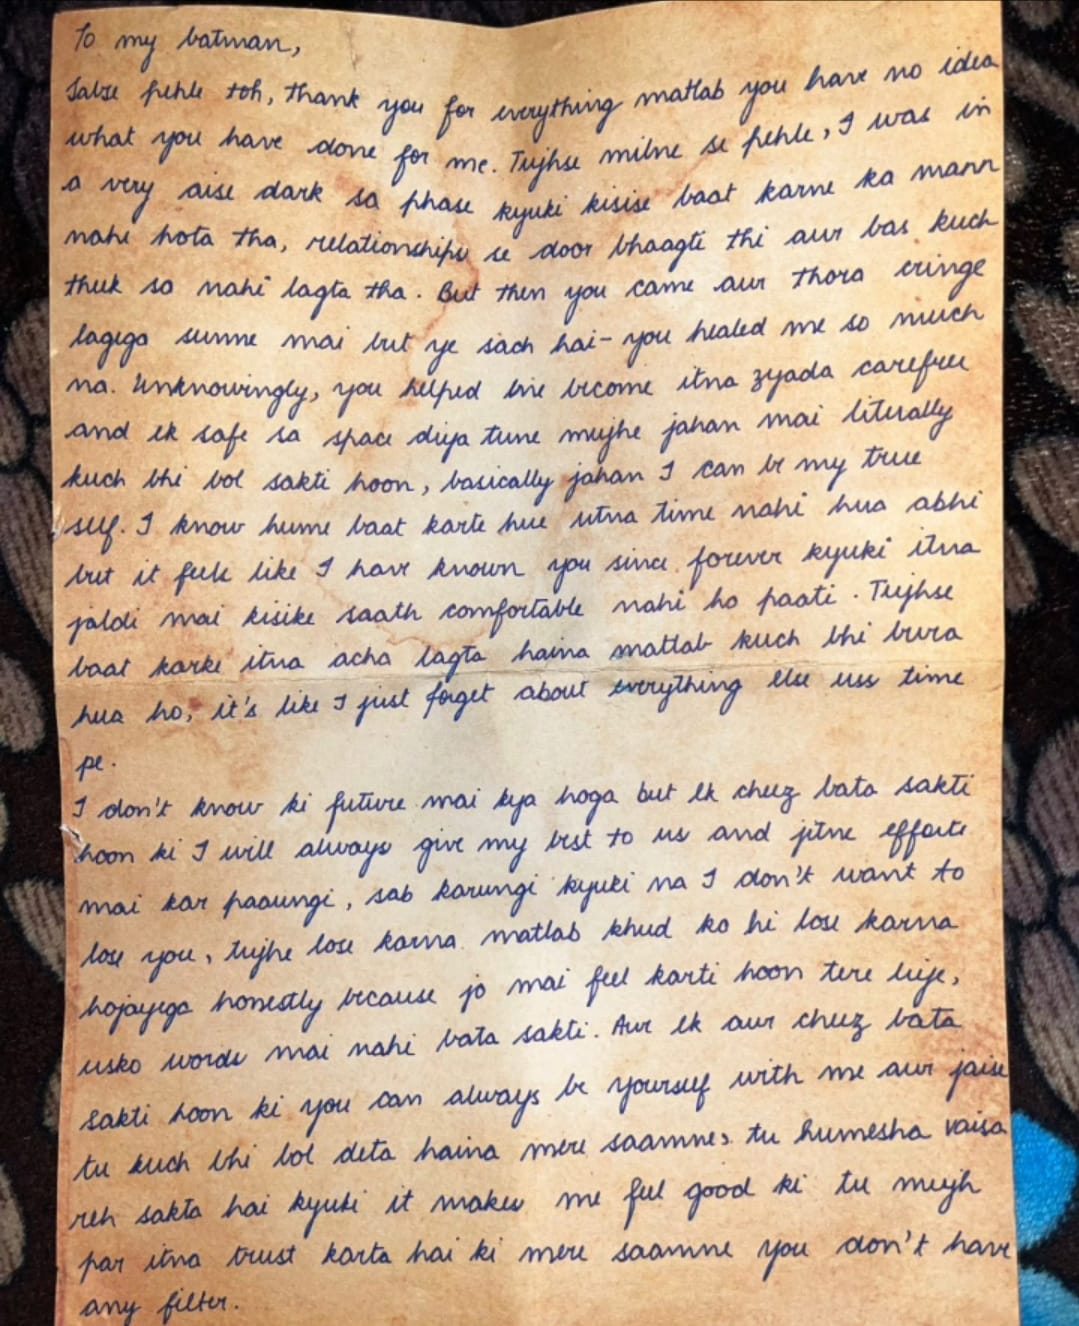 To my batman,
Sabse pehle toh, thank you for everything matlab you have no idea
what you have done for me. Tujhse milne se pehle, I was in
a very aise dark sa phase kyuki kisise baat karne ka mann
nahi hota tha, relationships se door bhaagti thi aur bas kuch
theek sa nahi lagta tha. But then you came aur thora cringe
lagega sunne mai but ye sach hai- you healed me so much
na. Unknowingly, you helped me become itna zyada carefree
and ek safe sa space diya tune mujhe jahan mai literally
kuch bhi bol sakti hoon, basically jahan I can be my true
self. I know hume baat karte hue utna time nahi hua abhi
but it feels like I have known you since forever kyuki itna
jaldi mai kisike saath comfortable nahi ho paati. Tujhse
baat karke itna acha lagta haina matlab kuch bhi bura
hua ho, it's like I just forget about everything else uss time
pe.
I don't know ki future mai kya hoga but ek cheez bata sakti
hoon ki I will always give my best to us and jitne efforts
mai kar paaungi, sab karungi kyuki na I don't want to
lose you, tujhe lose karna matlab khud ko hi lose karna
hojayega honestly because jo mai feel karti hoon tere liye,
usko words mai nahi bata sakti. Aur ek aur cheez bata
sakti hoon ki you can always be yourself with me aur jaise
tu kuch bhi bol deta haina mere saamne, tu humesha vaisa
reh sakta hai kyuki it makes me feel good ki tu mujh
par itna trust karta hai ki mere saamne you don't have
any filter.